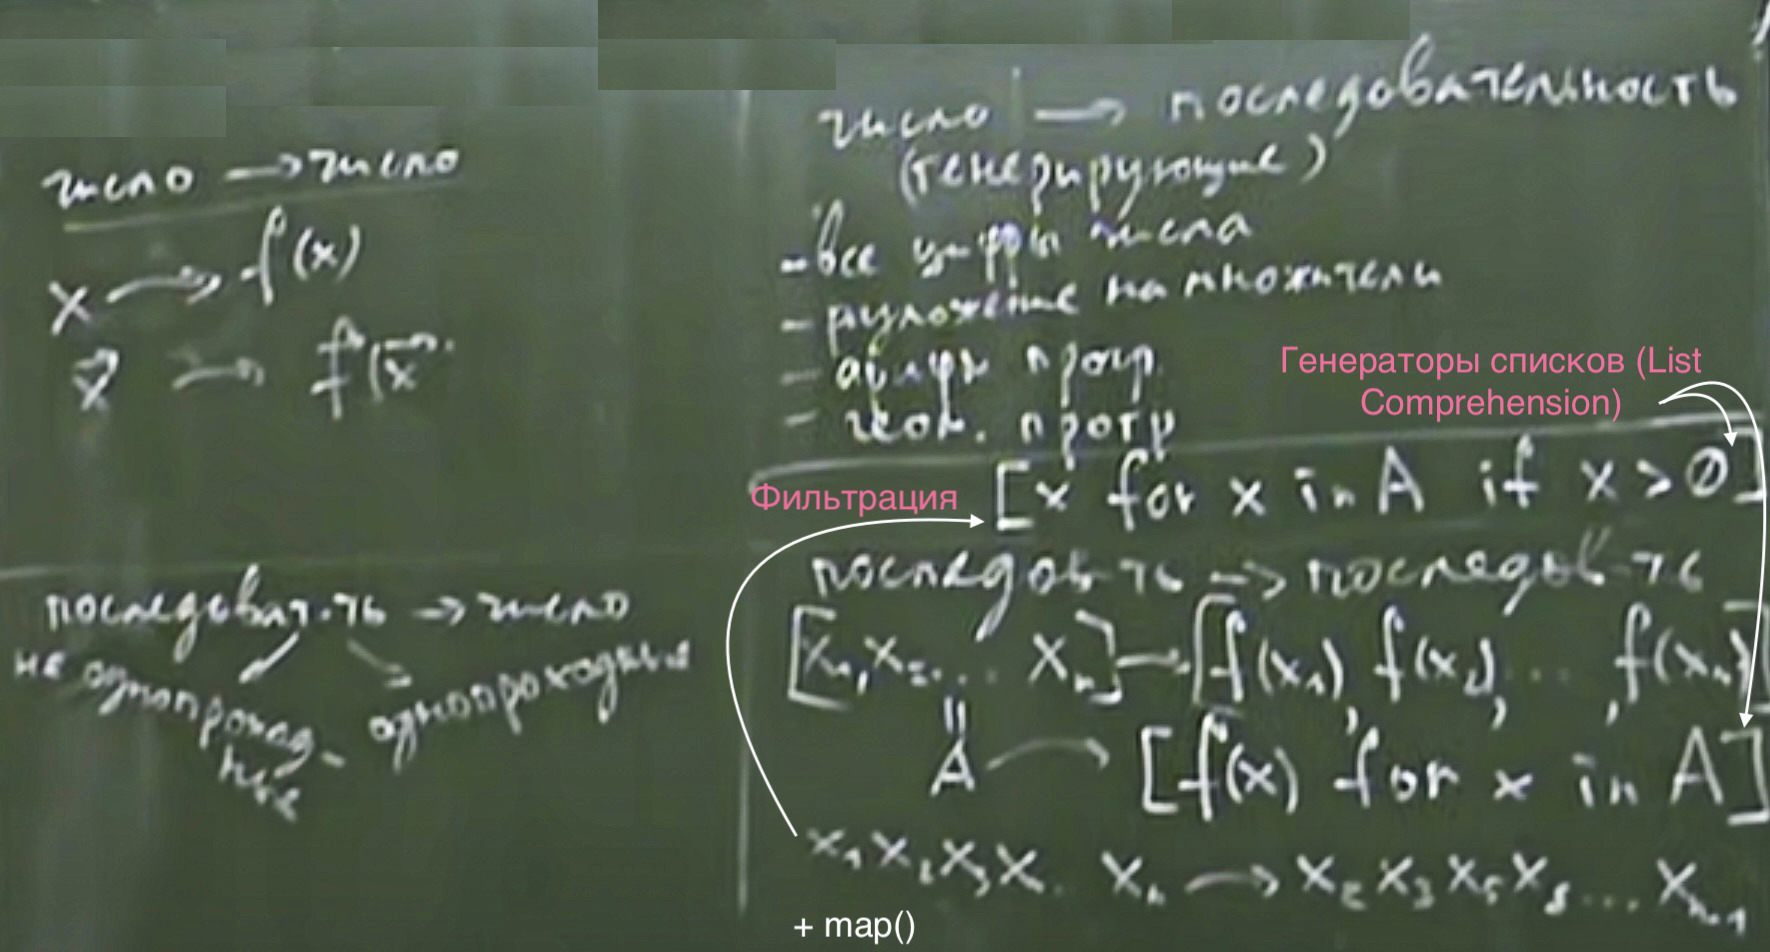 число → число
x → f(x)
x⃗ → f(x⃗
последоват-ть → число
не однопроход-
ные
однопроходные
число → последовательность
(генерирующие)
- все цифры числа
- разложение на множители
- арифм прогр.
- геом. прогр
Генераторы списков (List
Comprehension)
Фильтрация
[x for x in A if x > 0]
последов-ть -> последов-ть
[x₁, x₂... xₙ] → [f(x₁), f(x₂), ... , f(xₙ)]
॥
A → [f(x) for x in A]
x₁ x₂ x₃ x . xₙ → x₂ x₃ x₅ x₈ ... xₙ₋₁
+ map()